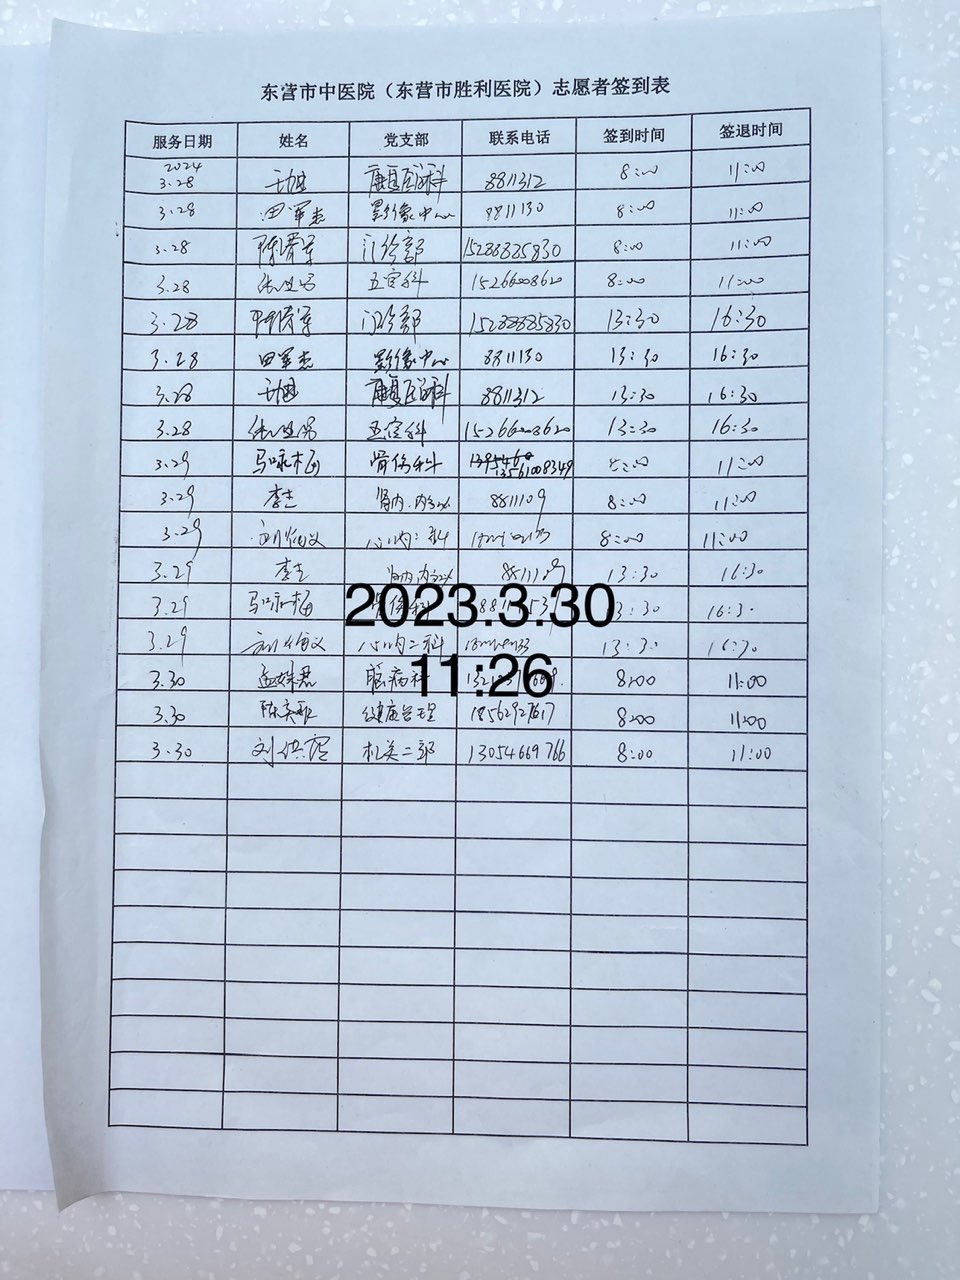 东营市中医院（东营市胜利医院）志愿者签到表
服务日期 姓名 党支部 联系电话 签到时间 签退时间
2024
3.28 康复医学科 8811312 8:00 11:00
3.28 田军杰 影像中心 8811130 8:00 11:00
3.28 门诊部 15288885830 8:00 11:00
3.28 五官科 15266008620 8:00 11:00
3.28 门诊部 15288885830 13:30 16:30
3.28 田军杰 影像中心 8811130 13:30 16:30
3.28 康复医学科 8811312 13:30 16:30
3.28 五官科 15266008620 13:30 16:30
3.29 马咏梅 骨伤科 13561008349 8:00 11:00
3.29 李 8811109 8:00 11:00
3.29 心内二科 8:00 11:00
3.29 李 8811109 13:30 16:30
3.29 马咏梅 骨伤科 13:30 16:30
2023.3.30
3.29 心内二科 13:30 16:30
3.30 孟姝君 8:00 11:00
11:26
3.30 健康管理 18562927617 8:00 11:00
3.30 刘供霞 机关二部 13054669766 8:00 11:00